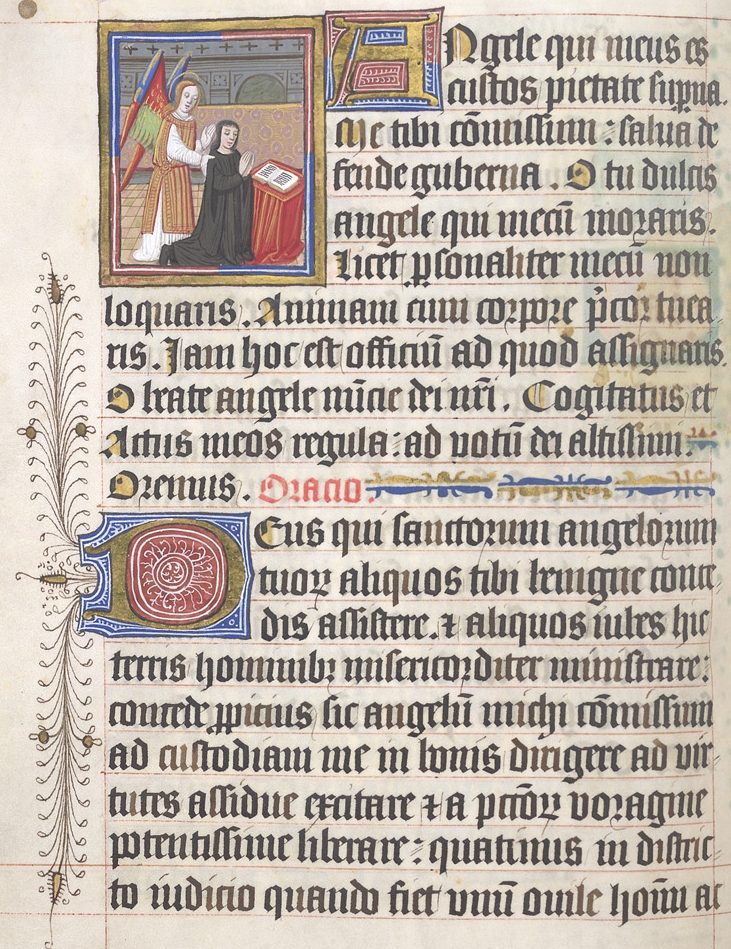 Angele qui meus es
custos pietate sup̱na.
Me tibi cõmissum : salua de
fende guberna . O tu dulcis
angele qui mecũ moraris.
Licet p̱sonaliter mecũ non
loquaris . Animam cum corpore p̃cor tuea
ris . Jam hoc est officiũ ad quod assignaris.
O beate angele nũcie dei nr̃i . Cogitatus et
Actus meos regula : ad votũ dei altissimi :
Oremus . Oracio .
Deus qui sanctorum angelorum
tuoꝝ aliquos tibi benigne conce-
dis assistere . ⁊ aliquos iubes hic
terris hominibꝫ misericorditer ministrare :
concede ꝓpicius sic angelũ michi cõmissum
ad custodiam me in bonis dirigere ad vir-
tutes assidue excitare ⁊ a pctõꝝ voragine
potentissime liberare : quatinus in distric-
to iudicio quando fiet vnũ ouile hoĩm ac